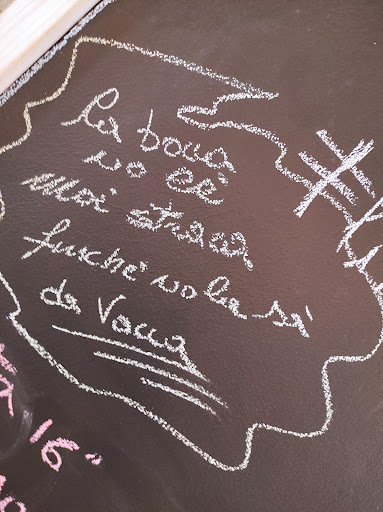 La boca
no l'è
Mai straca
finché no la sa'
da Vacca
#
16"